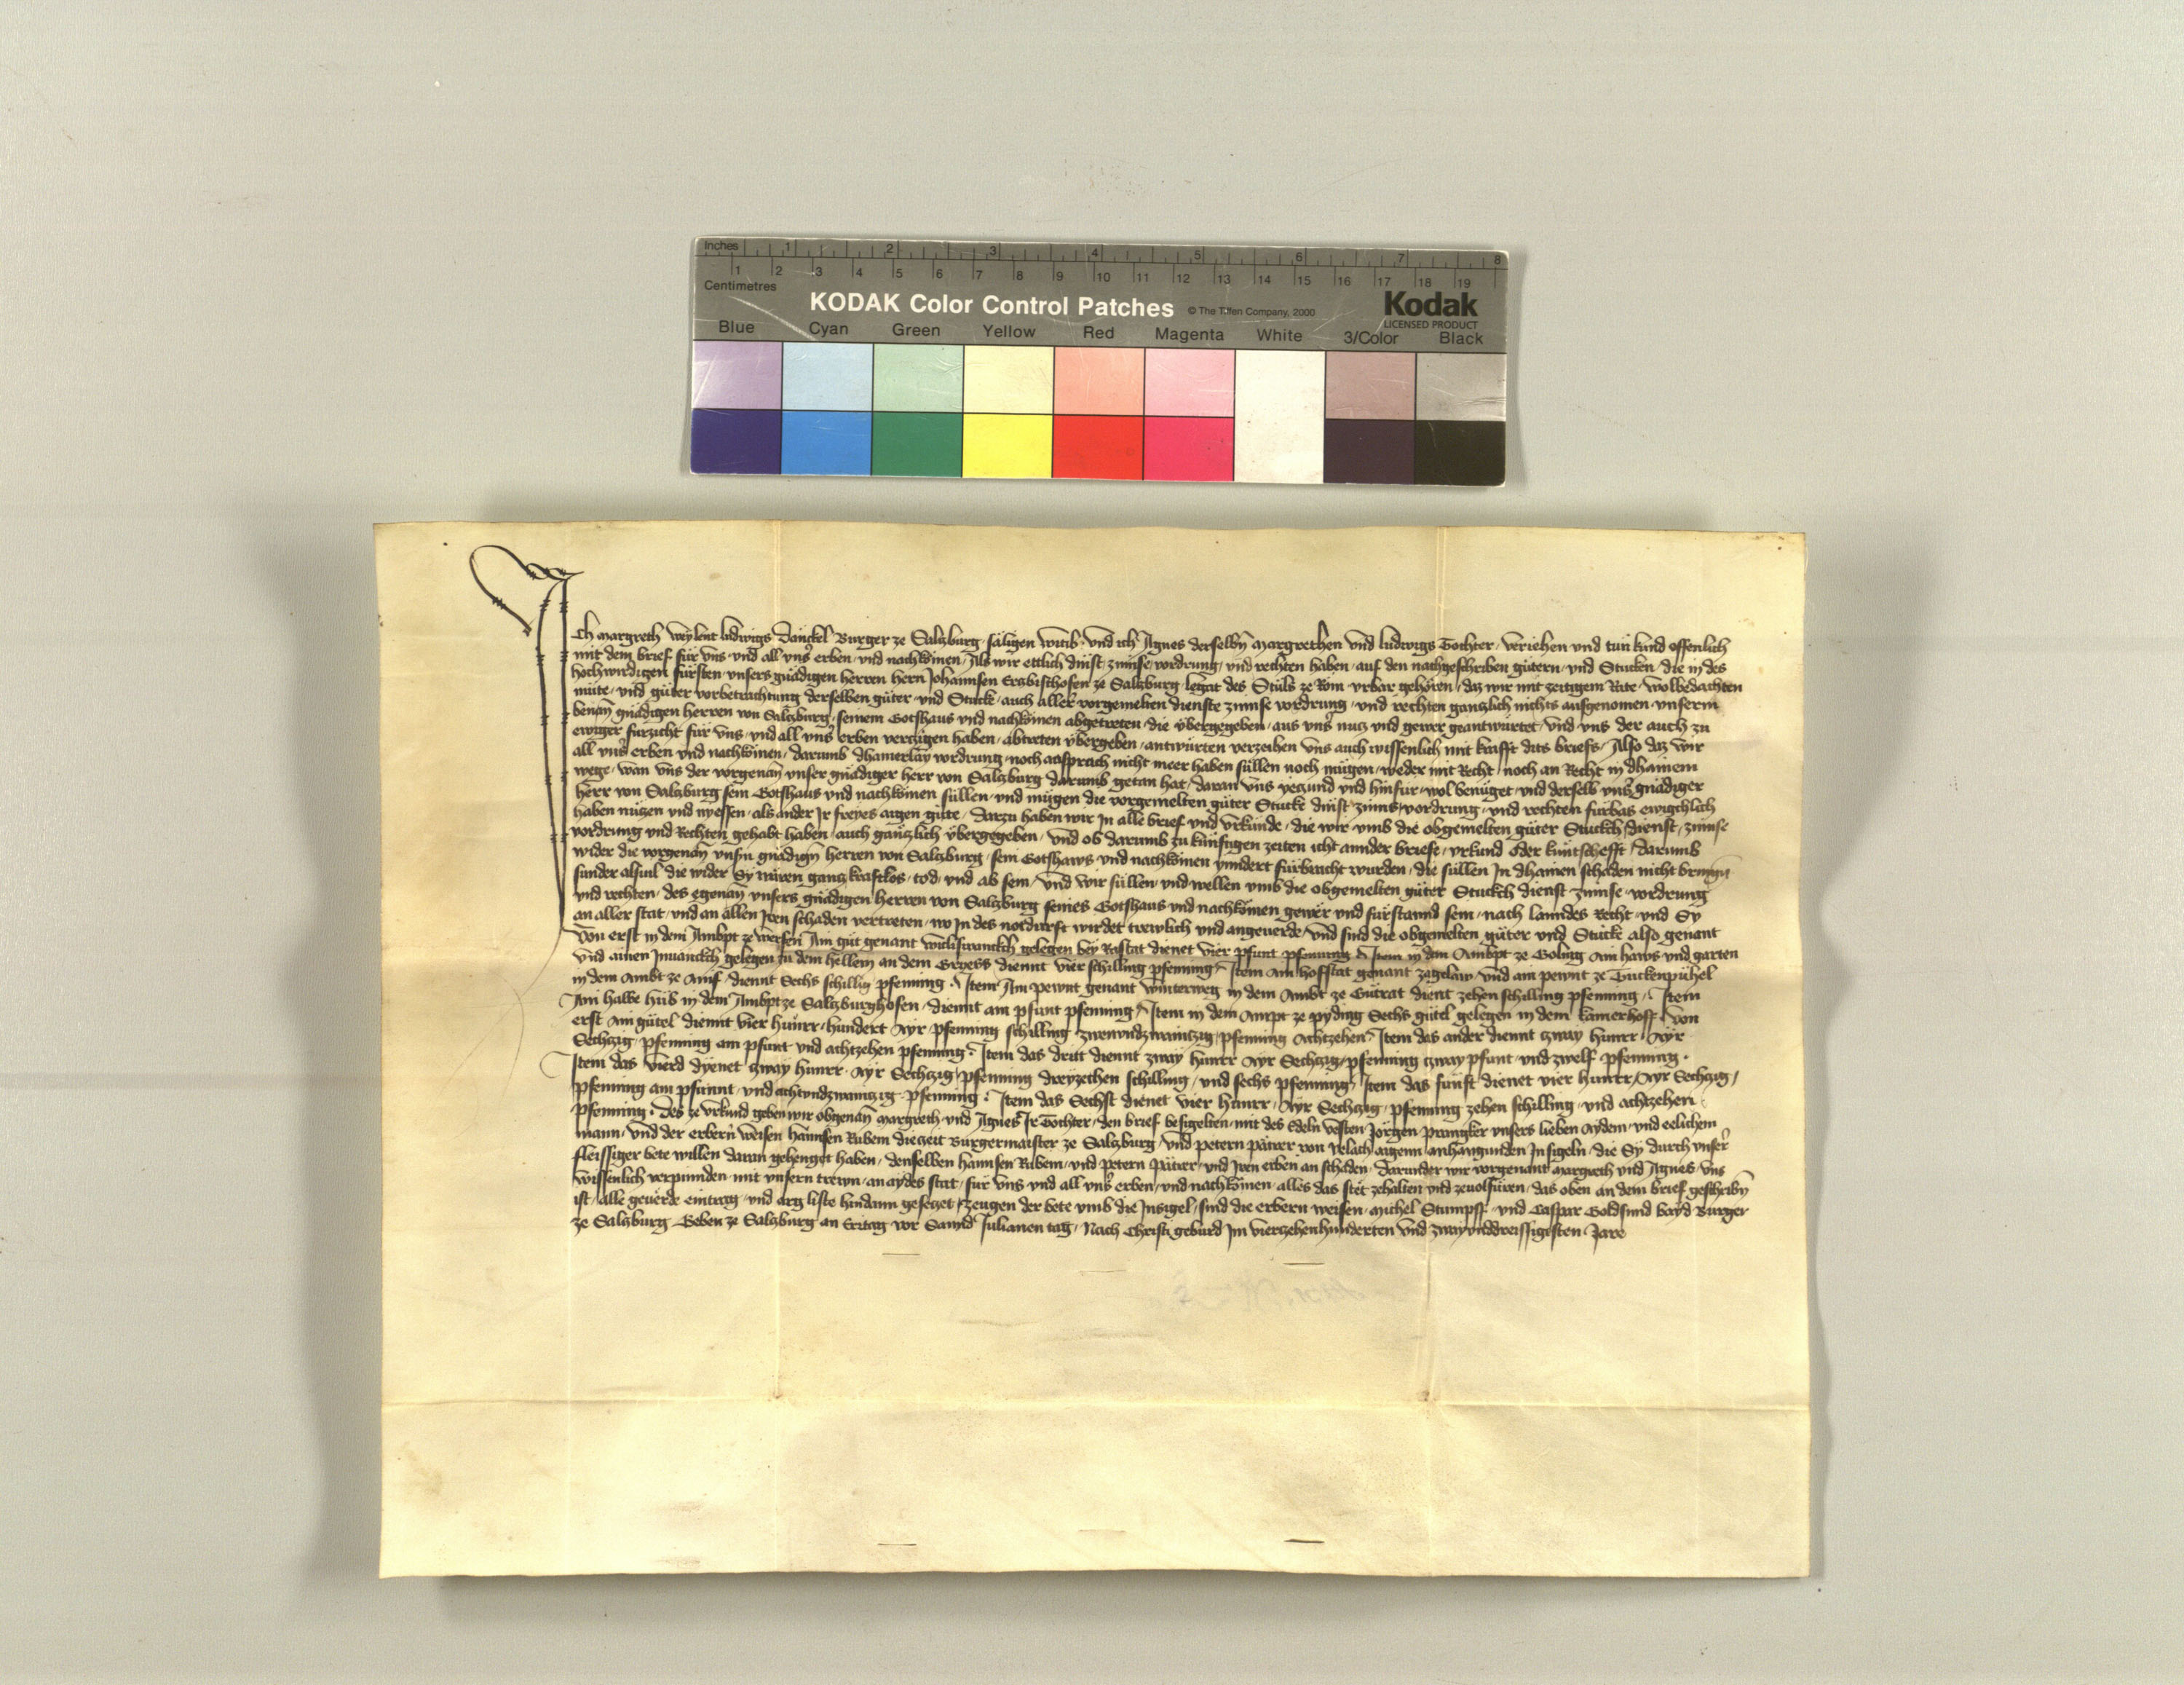 Inches 1 2 3 4 5 6 7 8
1 2 3 4 5 6 7 8 9 10 11 12 13 14 15 16 17 18 19
Centimetres
KODAK Color Control Patches © The Tiffen Company, 2000 Kodak
LICENSED PRODUCT
Blue Cyan Green Yellow Red Magenta White 3/Color Black
Ich Margreth weylent ludwigs Dänckel Burger ze Salzburg säligen witib und ich Agnes derselbn Margrethen und ludwigs Tochter veriehen und tun kund offenlich
mit dem brief für uns und all unser erben und nachkömen, Als wir ettlich dinst zinnse vordrung und rechten haben auf den nachgeschriben gütern und Stucken die in des
hochwirdigen fürsten unsers gnädigen herren hern Johannsen Erzbischofen ze Salzburg legat des Stüls ze Rom urbar gehören, daz wir mit zeitigem Rate wolbedachten
müte und güter vorbetrachtung derselben güter und Stuck auch aller vorgemelten dienste zinnse vordrung und rechten gänzlich nichts ausgenomen unserm
benan gnädigen herren von Salzburg seinem Gotshaus und nachkömen abgetreten die übergegeben aus unser nuz und gewer geantwürtet und uns der auch zu
ewiger fürzicht für uns und all unser erben verczigen haben, abtreten übergeben antwürten verzeihen uns auch wissenlich mit krafft dits briefs, Also daz wir
all unser erben und nachkömen, darumb dhainerlay vordrung noch ansprach nicht meer haben süllen noch mügen weder mit Recht noch an Recht in dhainem
wege, wan uns der vorgenan unser gnädiger herr von Salzburg darumb getan hat, daran uns yeczund und hinfür wol benüget, und derselb unser gnädiger
herr von Salzburg sein Gotshaus und nachkömen süllen und mügen die vorgemelten güter Stuck dinst zinns vordrung und rechten fürbas ewigchlich
haben nüzen und nyessen, als ander Ir freyes aigen güte, darzu haben wir In alle brief und urkünde, die wir umb die obgemelten güter Stuckch dienst, zinnse
vordrung und Rechten gehabt haben, auch gänzlich übergegeben, und ob darumb zu künftigen zeiten icht annder briefe, urkund oder kuntschefft darumb
wider die vorgenan unsern gnädign herren von Salzburg sein Gotshaws und nachkömen yndert fürbracht wurden, die süllen In dhainen schaden nicht bringn
sunder alsuil die wider Sy wären ganz krafftlos tod und ab sein, und wir süllen und wellen umb die obgemelten güter Stuckch dienst zinnse vordrung
und rechten des egenan unsers gnädigen herren von Salzburg seines Gotshaus und nachkömen gewer und fürstannd sein nach lanndes Recht und Sy
an aller stat und an allen Iren schaden vertreten, wo In des notdurft wirdet trewlich und angeuerde, und sind die obgemelten güter und Stuck also genant
Von erst in dem Ambpt ze werfen Ain gut genant gelegen bey Rastat dienet vier pfunt pfenning Item in dem Ambpt ze Goling Ain haws und garten
und ainen Inuanckch gelegen zu dem hellein an dem Griess diennt vier schilling pfenning Item Ain hofstat genant und ain pewnt ze Tuckenpühel
in dem Ambt ze Anif diennt Sechs schilling pfenning Item Ain pewnt genant winterweg in dem Ambt ze Gutrat dient zehen schilling pfenning Item
Ain halbe hub in dem Ambpt ze Salzburghofen diennt ain pfunt pfenning Item in dem Ampt ze pyding Sechs gütel gelegen in dem kamerhoff Von
erst Ain gütel diennt vier hunrr hundert Ayr pfenning schilling zwenundzwainczig pfenning Achtzehen Item das ander diennt zway hunrr Ayr
Sechzig pfenning ain pfunt und achtzehen pfenning Item das dritt diennt zway hunrr Ayr Sechzig pfenning zway pfunt und zwelf pfenning
Item das vierd dyenet zway hunrr Ayr Sechzig pfenning dreyzehen schilling und sechs pfenning Item das fünft dienet vier hunrr Ayr Sechzig
pfenning ain pfunnt und achtundzwainczig pfenning Item das Sechst dienet vier hunrr Ayr Sechzig pfenning zehen schilling und achtzehen
pfenning. Des ze urkund geben wir obgenan Margreth und Agnes Ir Tochter den brief besigelten mit des Edeln vesten Jörgen prangker unsers lieben Aydem und eelichem
mann, und der erbern weisen hannsen Rubein diezeit Burgermaister ze Salzburg und petern pätrer von aigenn anhangunden Insigeln, die Sy durch unser
fleissiger bete willen daran gehengt haben, denselben hannsen Rubein und petern pätrer und Iren erben an schaden, darunder wir vorgenant Margreth und Agnes uns
wissenlich verpinden mit unsern trewn an aydes stat für uns und all unser erben und nachkömen alles das stet zehalten und zeuolfüren, das oben an dem brief geschribn
ist, alle geuerde eintrag und arg liste hindann geseczet, zeugen der bete umb die Insigel sind die erbern weisen Michel Stumpff und Caspar Goldsmid bayd Burger
ze Salzburg. Geben ze Salzburg an Eritag vor Sannd Julianen tag, Nach Christi geburd Im vierczehenhunderten und zwayunddreissigisten Jare